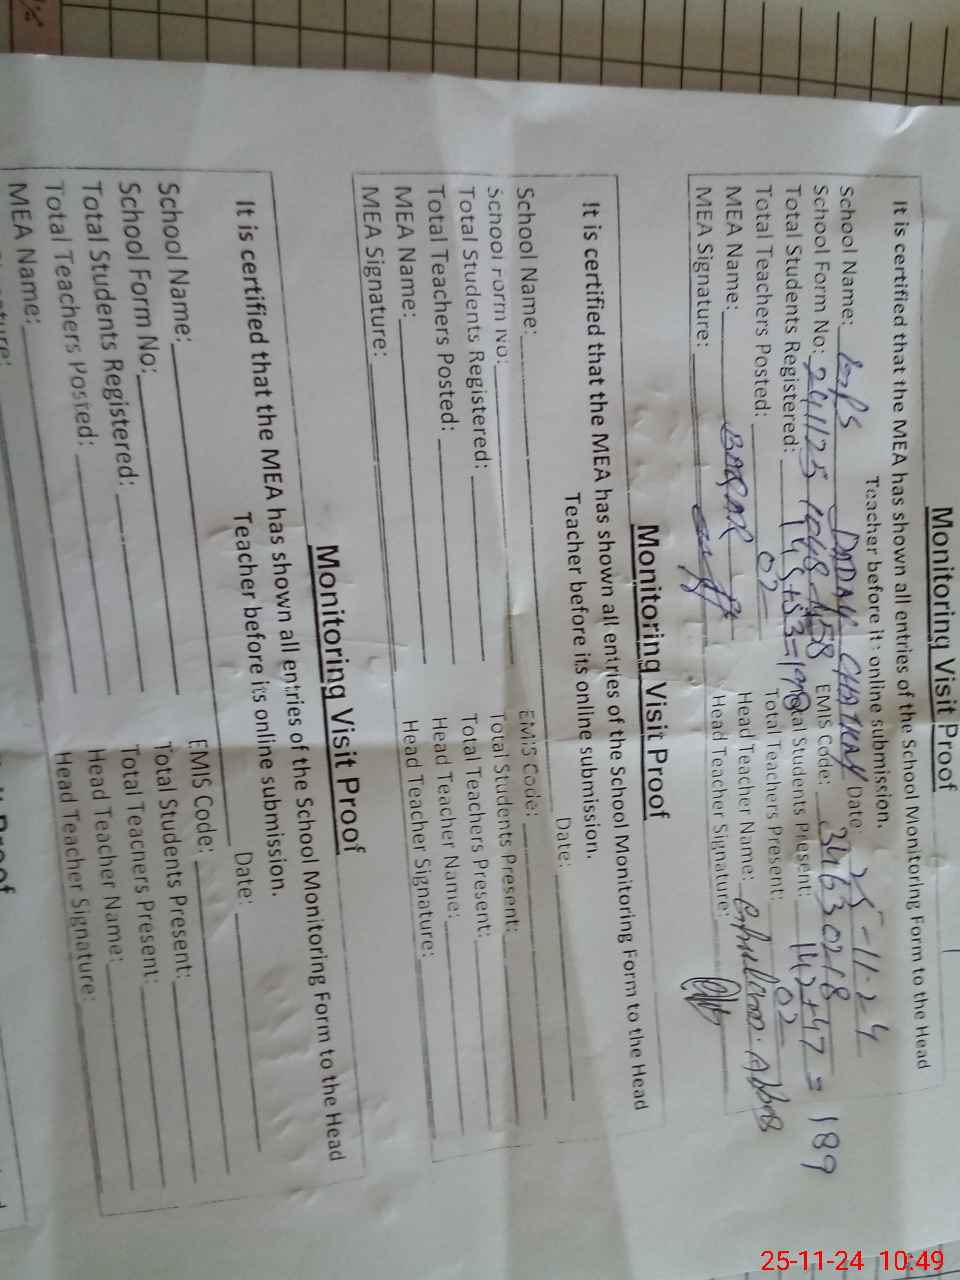 Monitoring Visit Proof
It is certified that the MEA has shown all entries of the School Monitoring Form to the Head
Teacher before its online submission.
School Name: DADAY Date: 25-11-24
School Form No: 241125 1048 EMIS Code: 34630218
Total Students Registered: 145+53=198 Total Students Present: 142+47=189
Total Teachers Posted: 02 Total Teachers Present: 02
MEA Name: Head Teacher Name: Abbas
MEA Signature: Head Teacher Signature:
Monitoring Visit Proof
It is certified that the MEA has shown all entries of the School Monitoring Form to the Head
Teacher before its online submission.
School Name: Date:
School Form No: EMIS Code:
Total Students Registered: Total Students Present:
Total Teachers Posted: Total Teachers Present:
MEA Name: Head Teacher Name:
MEA Signature: Head Teacher Signature:
Monitoring Visit Proof
It is certified that the MEA has shown all entries of the School Monitoring Form to the Head
Teacher before its online submission.
School Name: Date:
School Form No: EMIS Code:
Total Students Registered: Total Students Present:
Total Teachers Posted: Total Teachers Present:
MEA Name: Head Teacher Name:
Head Teacher Signature:
25-11-24 10:49